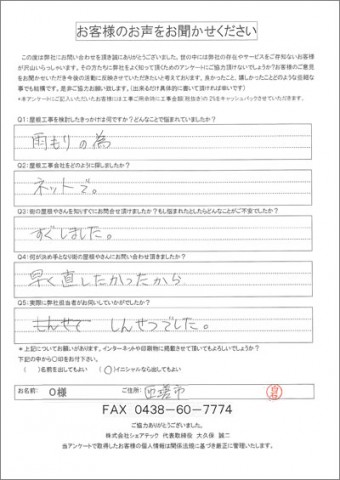 お客様のお声をお聞かせください
この度は弊社にお問い合わせを頂き誠にありがとうございました。世の中には弊社の存在やサービスをご存知ないお客様
が沢山いらっしゃいます。その方たちに弊社をよく知って頂くためのアンケートにご協力頂けないでしょうか?お客様のご意見
をお聞かせいただき今後の活動に反映させていただきたいと考えております。良かったこと、嬉しかったことどのような些細な
事でも結構です。是非ご協力お願い致します。(出来るだけ具体的に書いて頂ければ幸いです)
*本アンケートにご記入いただいたお客様には工事ご用命後に工事金額(税抜き)の2%をキャッシュバックさせていただきます。
Q1:屋根工事を検討したきっかけは何ですか?どんなことで悩まれていましたか?
雨もりの為
Q2:屋根工事会社をどのように探しましたか?
ネットで。
Q3:街の屋根やさんを知りすぐにお問合せ頂けましたか?もし悩まれたとしたらどんなことがご不安でしたか?
すぐしました。
Q4:何が決め手となり街の屋根やさんにお問い合わせ頂きましたか?
早く直したかったから
Q5:実際に弊社担当者がお伺いしていかがでしたか?
しんせつでした。
* 上記についてお願いがあります。インターネットや印刷物に掲載させて頂いてもよろしいでしょうか?
下記の中から○印をお付下さい。
( )名前を出してもよい (○)イニシャルなら出してもよい
お名前: O様 ご住所:
FAX 0438-60-7774
ご協力ありがとうございました。
株式会社シェアテック 代表取締役 大久保 誠二
当アンケートで取得したお客様の個人情報は関係法規に基づき厳正に管理いたします。